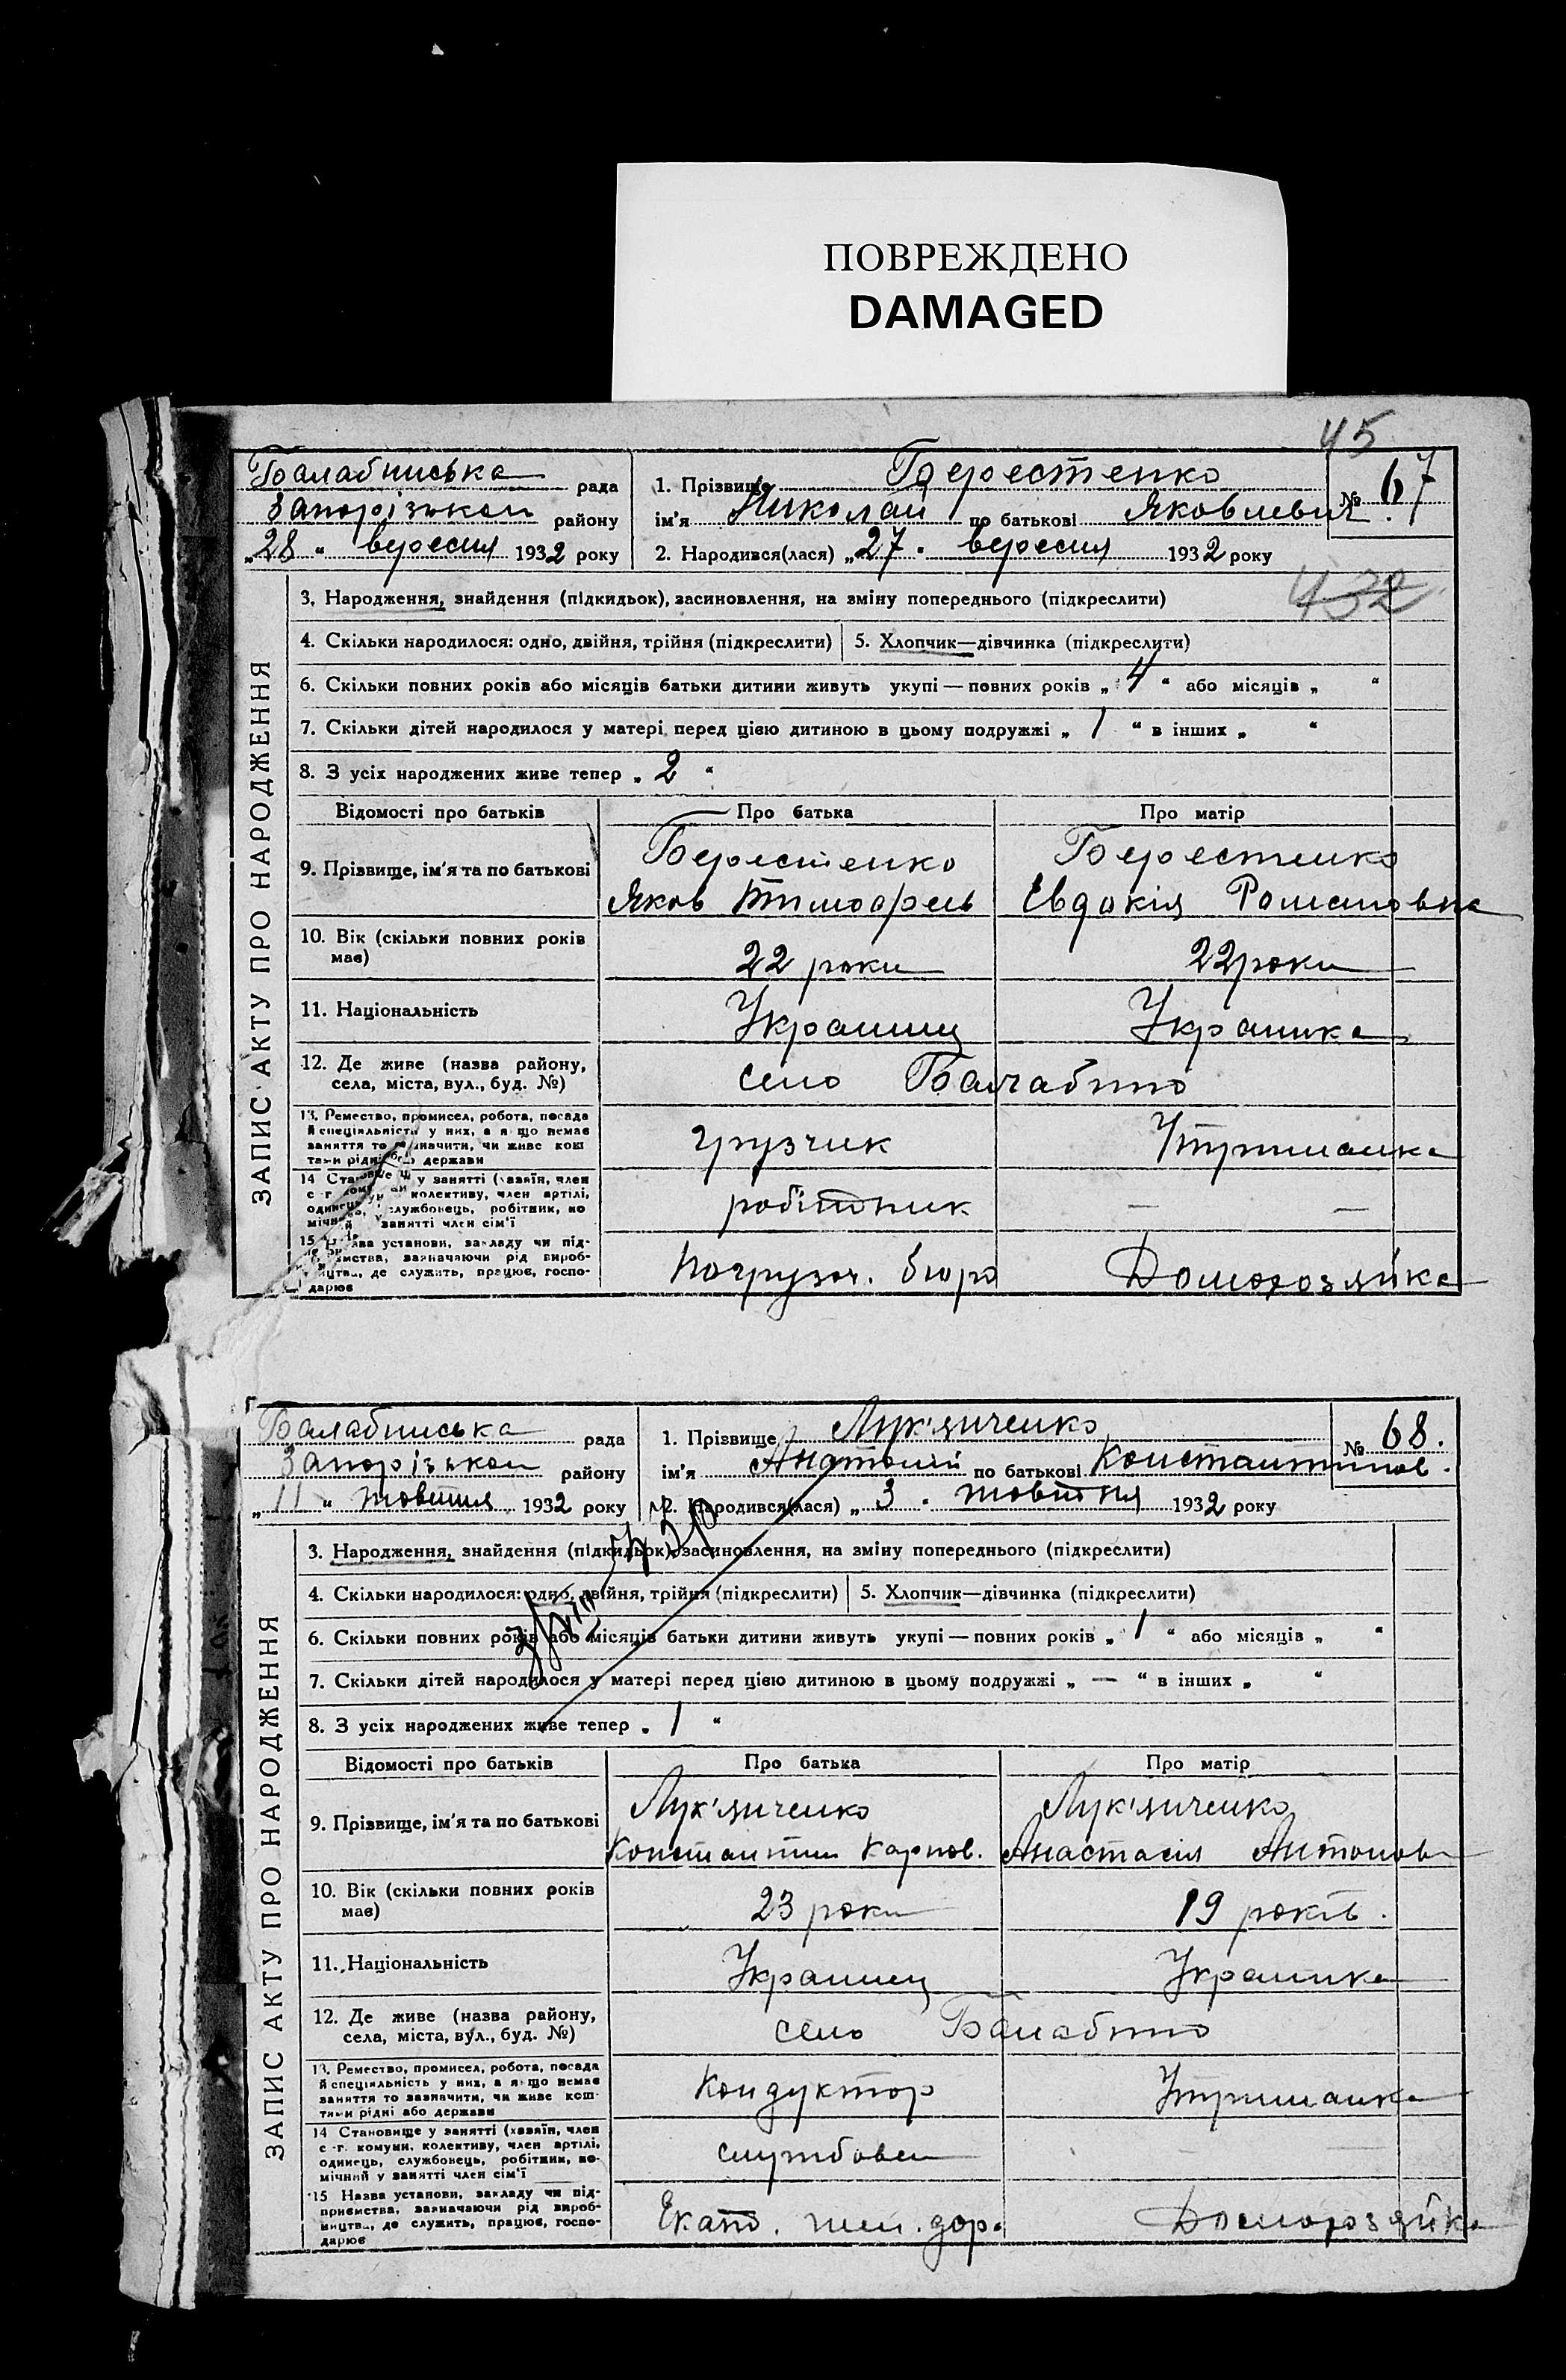 ПОВРЕЖДЕНО
DAMAGED
45
Балабинська рада
Запорізькой району
„28 “ вересня 1932 року
1. Прізвище Берестенко
ім'я Николай по батькові Яковлевич.
№ 67
2. Народився(лася) „27 “ вересня 1932 року
432
ЗАПИС АКТУ ПРО НАРОДЖЕННЯ
3. Народження, знайдення (підкидьок), засиновлення, на зміну попереднього (підкреслити)
4. Скільки народилося: одно, двійня, трійня (підкреслити) 5. Хлопчик—дівчинка (підкреслити)
6. Скільки повних років або місяців батьки дитини живуть укупі — повних років „ 4 “ або місяців „ “
7. Скільки дітей народилося у матері перед цією дитиною в цьому подружжі „ 1 “ в інших „ “
8. З усіх народжених живе тепер „ 2 “
Відомості про батьків Про батька Про матір
9. Прізвище, ім'я та по батькові
Берестенко Берестенко
Яков Тимофеев Евдокія Романовна
10. Вік (скільки повних років
має)
22 роки 22 роки
11. Національність Украинец Украинка
12. Де живе (назва району,
села, міста, вул., буд. №)
село Балабино
13. Ремество, промисел, робота, посада
й спеціяльність у них, а якщо немає
заняття то зазначити, чи живе кош
тами рідні або держави
грузчик Утриманка
14 Становище у занятті (хазяїн, член
с.-г. комуни, колективу, член артілі,
одинець, службонець, робітник, по
мічний у занятті член сім'ї
робітник — —
15 Назва установи, закладу чи під-
приємства, зазначаючи рід вироб-
ництва, де служить, працює, госпо-
дарює
Погрузоч. бюро Домохозяйка
Балабинська рада
Запорізькой району
„ 11 “ жовтня 1932 року
1. Прізвище Лук'янченко
ім'я Анатолій по батькові Константинов.
№ 68.
2. Народився(лася) „ 3 “ жовтня 1932 року
ЗАПИС АКТУ ПРО НАРОДЖЕННЯ
3. Народження, знайдення (підкидьок), засиновлення, на зміну попереднього (підкреслити)
4. Скільки народилося: одно, двійня, трійня (підкреслити) 5. Хлопчик—дівчинка (підкреслити)
6. Скільки повних років або місяців батьки дитини живуть укупі — повних років „ 1 “ або місяців „ “
7. Скільки дітей народилося у матері перед цією дитиною в цьому подружжі „ — “ в інших „ “
8. З усіх народжених живе тепер „ 1 “
Відомості про батьків Про батька Про матір
9. Прізвище, ім'я та по батькові
Лук'янченко Лук'янченко
Константин Карпов. Анастасія Антонов
10. Вік (скільки повних років
має)
23 роки 19 років.
11. Національність Украинец Украинка
12. Де живе (назва району,
села, міста, вул., буд. №)
село Балабино
13. Ремество, промисел, робота, посада
й спеціяльність у них, а якщо немає
заняття то зазначити, чи живе кош-
тами рідні або держави
Кондуктор Утриманка
14 Становище у занятті (хазяїн, член
с.-г. комуни, колективу, член артілі,
одинець, службонець, робітник, по-
мічний у занятті член сім'ї
службовец
15 Назва установи, закладу чи під-
приємства, зазначаючи рід вироб-
ництва, де служить, працює, госпо-
дарює
Екат. жел. дор. Домохозяйка